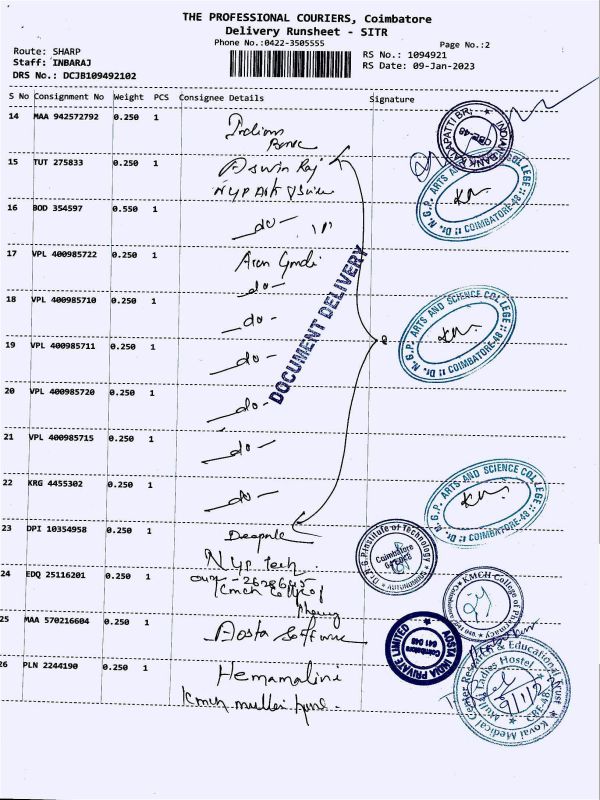 THE PROFESSIONAL COURIERS, Coimbatore
Delivery Runsheet - SITR
Phone No.:0422-3505555
Page No.:2
Route: SHARP
Staff: INBARAJ
DRS No.: DCJB109492102
RS No.: 1094921
RS Date: 09-Jan-2023
S No Consignment No Weight PCS Consignee Details Signature
14 MAA 942572792 0.250 1 Indian
Bank
INDIAN BANK KALAPATTI BR.
CBE-48
15 TUT 275833 0.250 1 Aswin Raj
Dr. N. G. P. ARTS AND SCIENCE COLLEGE
COIMBATORE-48
16 BOD 354597 0.550 1 -do-
17 VPL 400985722 0.250 1
-do-
18 VPL 400985710 0.250 1 -do-
DOCUMENT DELIVERY
Dr. N. G. P. ARTS AND SCIENCE COLLEGE
COIMBATORE-48
19 VPL 400985711 0.250 1 -do-
20 VPL 400985720 0.250 1 -do-
21 VPL 400985715 0.250 1 -do-
22 KRG 4455302 0.250 1 -do-
Dr. N. G. P. ARTS AND SCIENCE COLLEGE
COIMBATORE-48
23 DPI 10354958 0.250 1
Tech
Dr. N.G.P. Institute of Technology
Coimbatore
24 EDQ 25116201 0.250 1
Kmch College of
KMCH College of Pharmacy
25 MAA 570216604 0.250 1 Aosta Software
AOSTA INDIA PRIVATE LIMITED
Coimbatore
641 048
26 PLN 2244190 0.250 1 Hemamalini
Kmch mullai
Kovai Medical Center Research & Educational Trust
Ladies Hostel